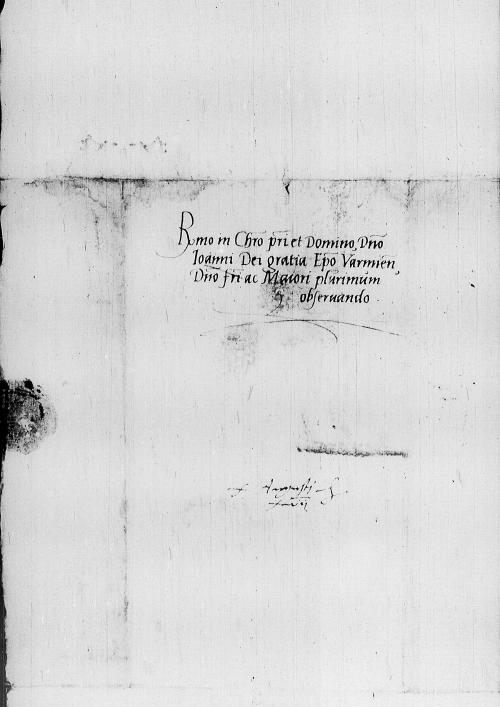 Rmo in Chro pri et Domino, Dno
Ioanni Dei gratia Epo Varmien,
Dno fri ac Maiori plurimum
observando
Augusti